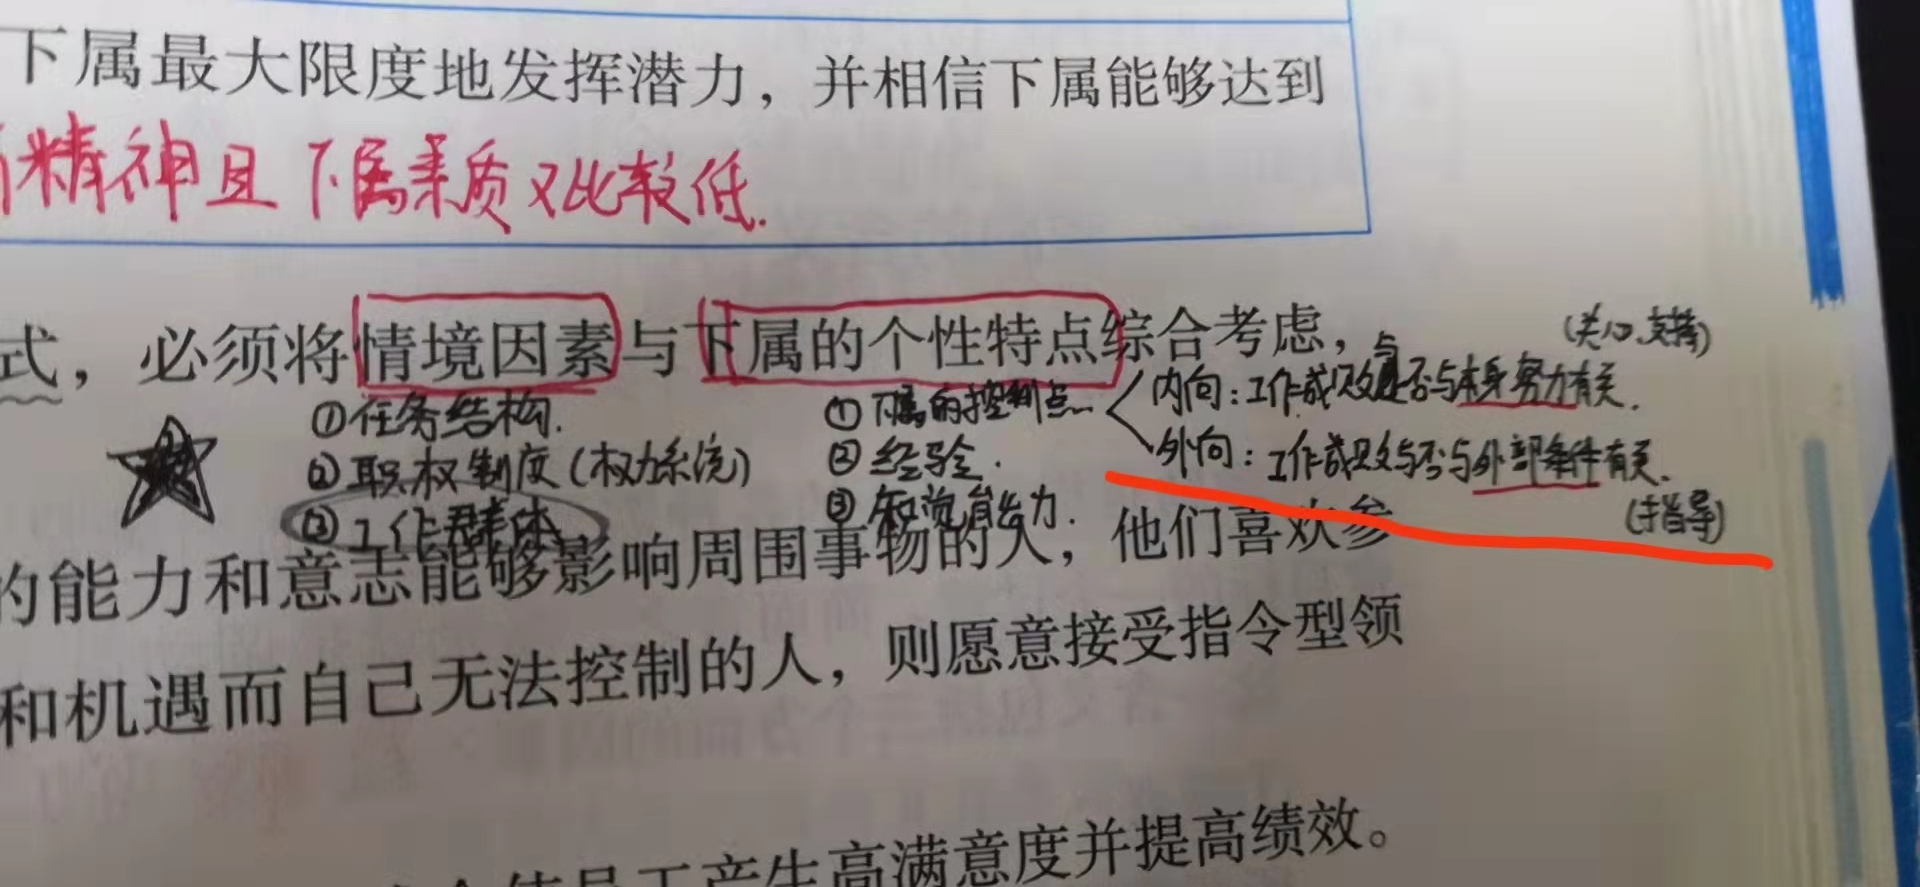 下属最大限度地发挥潜力，并相信下属能够达到
精神且下属素质又比较低.
式，必须将情境因素与下属的个性特点综合考虑，
(关心、支持)
①任务结构.
②职权制度(权力系统)
③工作群体
①下属的控制点
②经验.
③知觉能力.
内向：工作成败与是否与本身努力有关.
外向：工作成败与否与外部条件有关.
(指导)
的能力和意志能够影响周围事物的人，他们喜欢参
和机遇而自己无法控制的人，则愿意接受指令型领
产生高满意度并提高绩效。